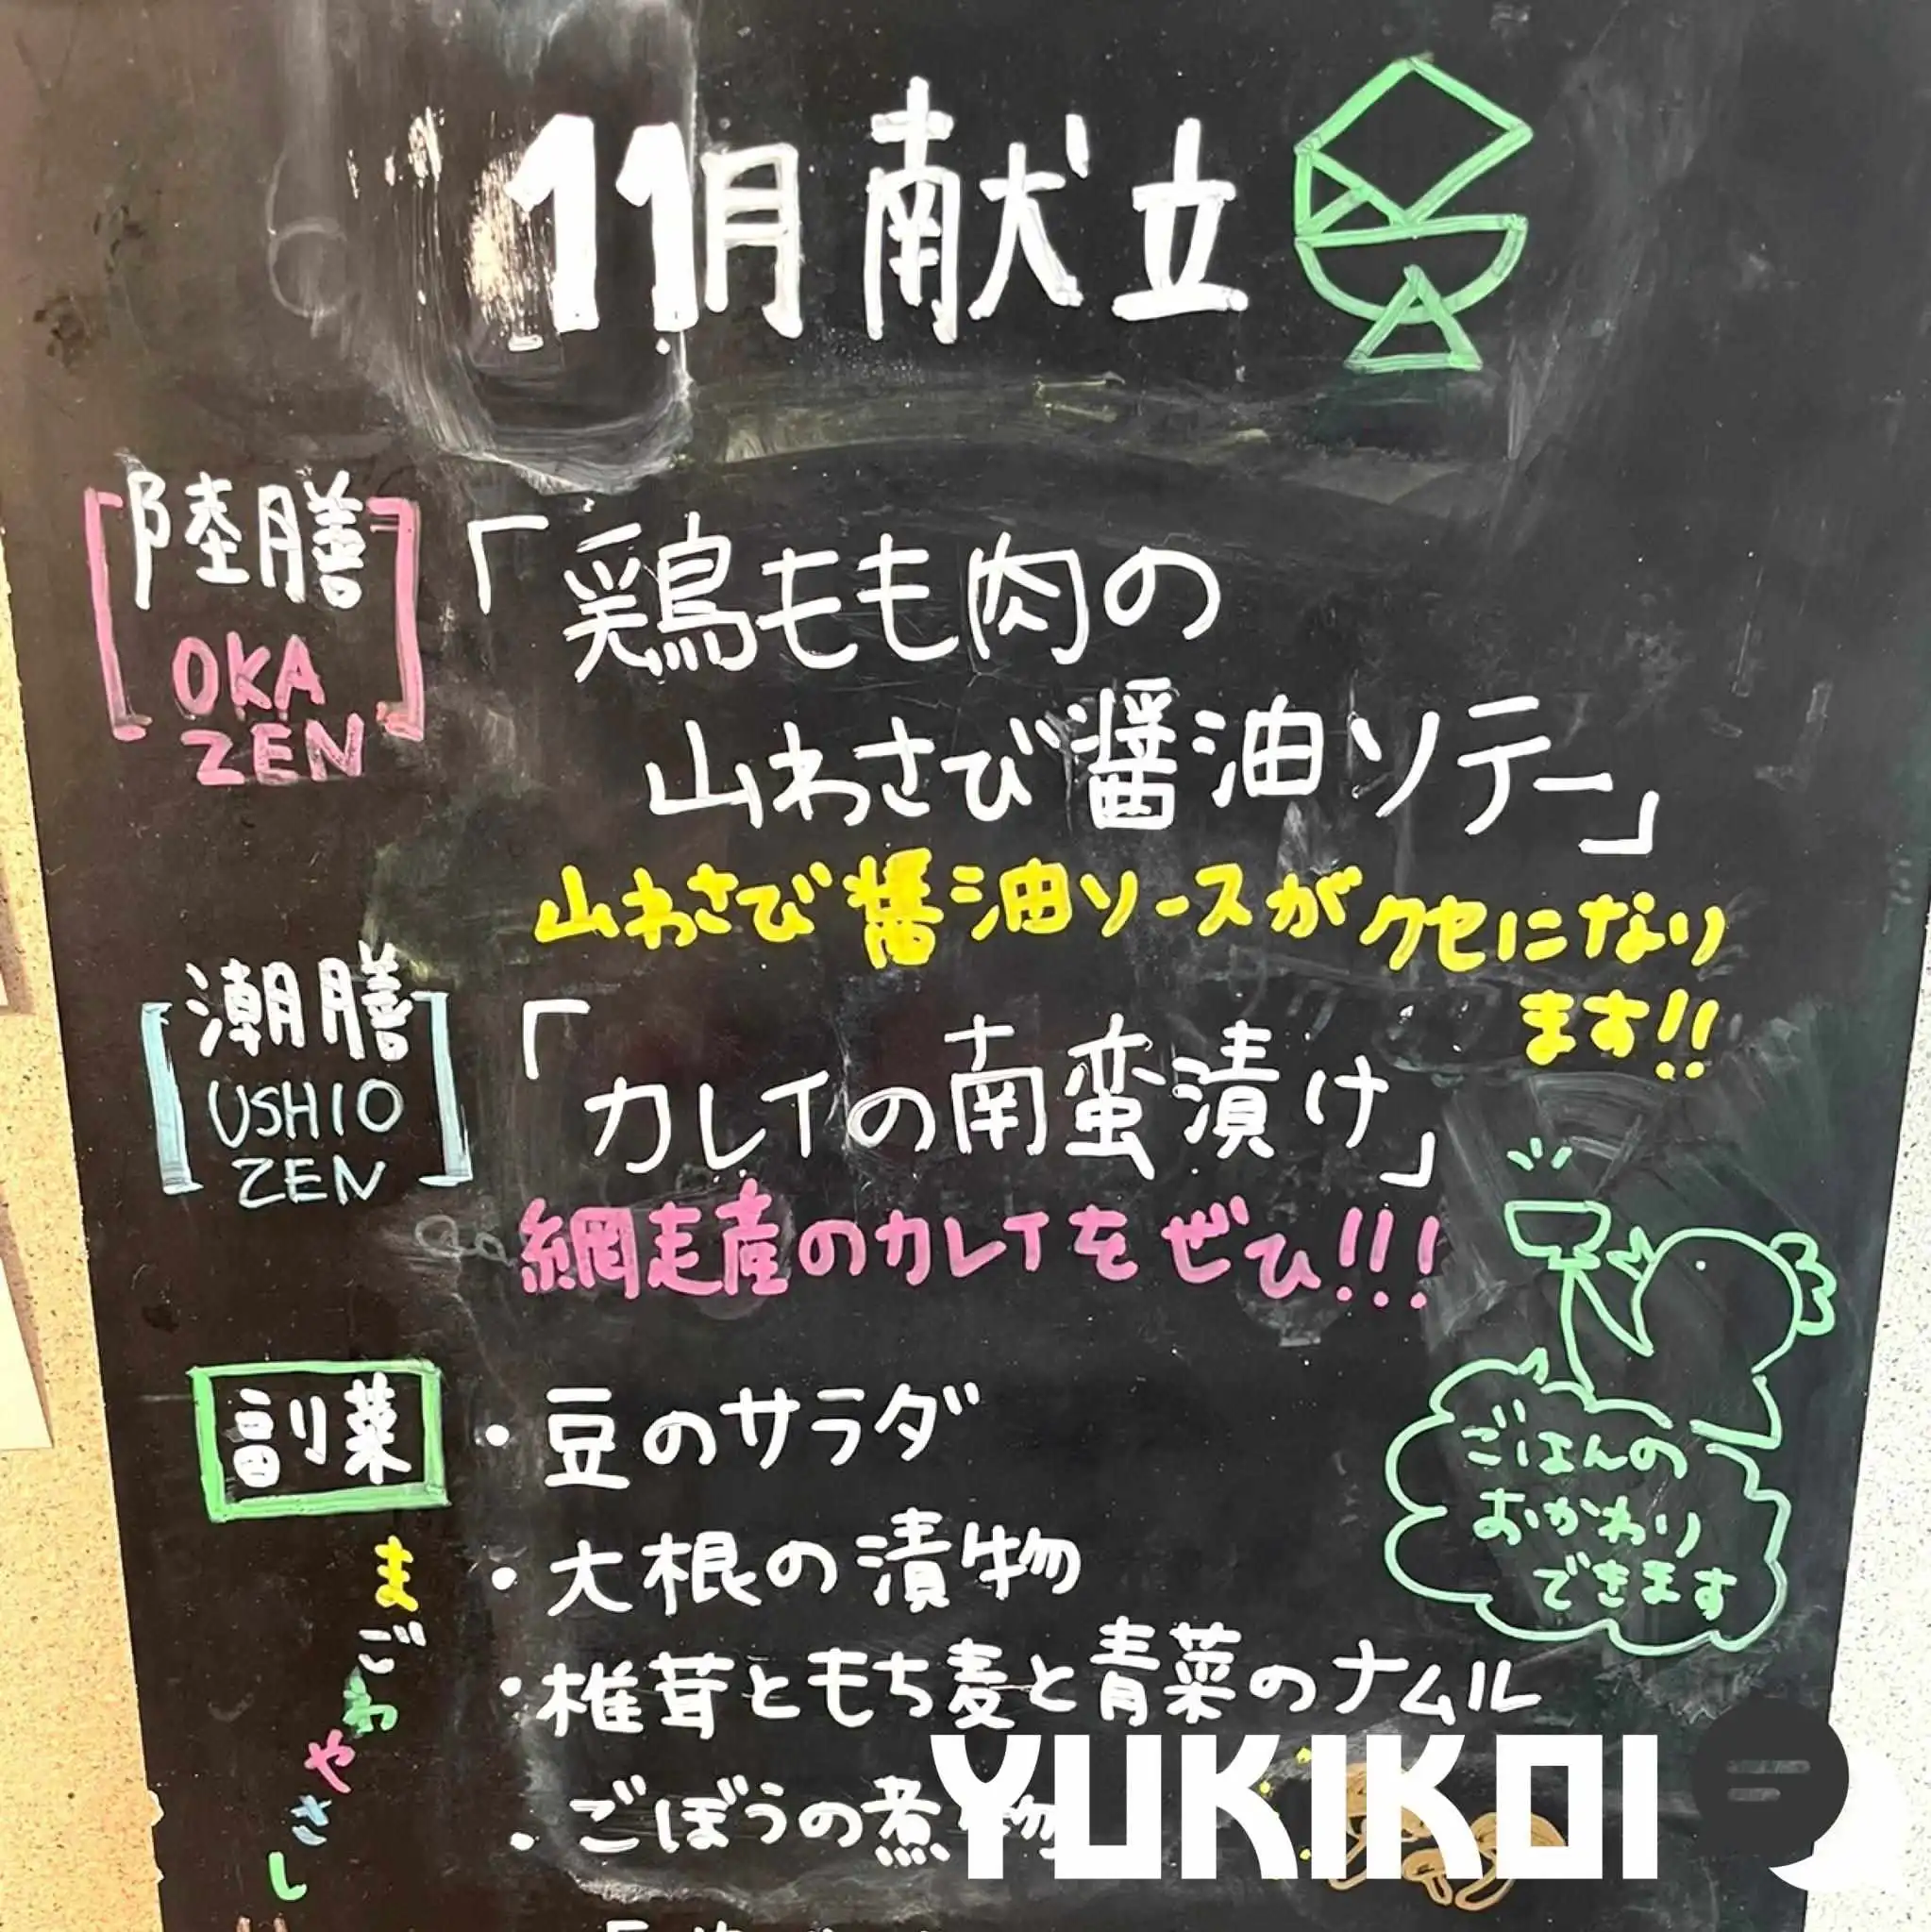 11月献立
陸膳
OKA
ZEN
「鶏もも肉の
山わさび醤油ソテー」
山わさび醤油ソースがクセになり
ます!!
潮膳
USHIO
ZEN
「カレイの南蛮漬け」
網走産のカレイをぜひ!!!
副菜
・豆のサラダ
・大根の漬物
・椎茸ともち麦と青菜のナムル
・ごぼうの煮物
まごわやさし
ごはんの
おかわり
できます
YUKIKOI